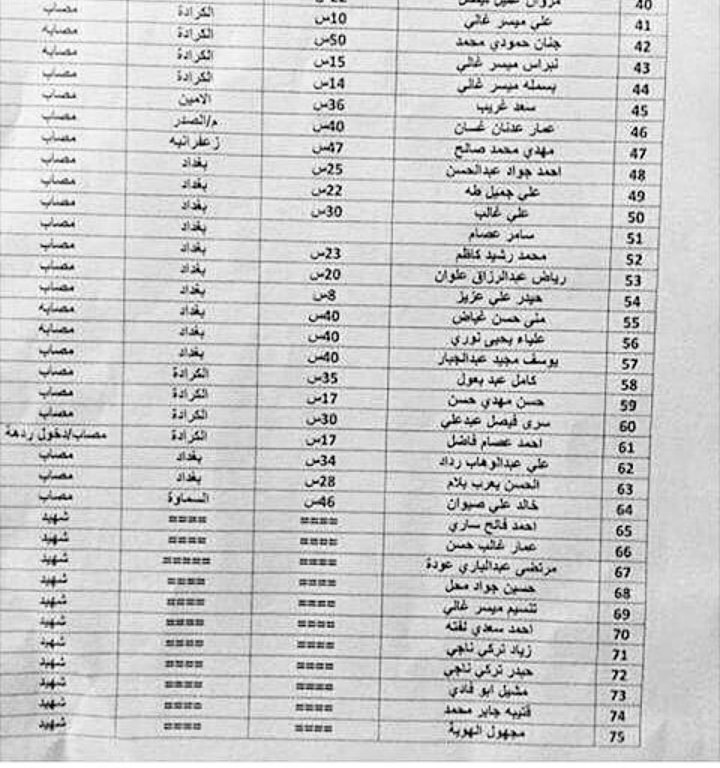 40
41 علي ميسر غالي 10س الكرادة مصاب
42 جنان حمودي محمد 50س الكرادة مصابه
43 نبراس ميسر غالي 15س الكرادة مصابه
44 بسمله ميسر غالي 14س الكرادة مصاب
45 سعد غريب 36س الامين مصاب
46 عمار عدنان غسان 40س م/الصدر مصاب
47 مهدي محمد صالح 47س زعفرانيه مصاب
48 احمد جواد عبدالحسن 25س بغداد مصاب
49 علي جميل طه 22س بغداد مصاب
50 علي غالب 30س بغداد مصاب
51 سامر عصام بغداد مصاب
52 محمد رشيد كاظم 23س بغداد مصاب
53 رياض عبدالرزاق علوان 20س بغداد مصاب
54 حيدر علي عزيز 8س بغداد مصاب
55 منى حسن غياض 40س بغداد مصابه
56 علياء يحيى نوري 40س بغداد مصابه
57 يوسف مجيد عبدالجبار 40س بغداد مصاب
58 كامل عبد بعول 35س الكرادة مصاب
59 حسن مهدي حسن 17س الكرادة مصاب
60 سرى فيصل عبدعلي 30س الكرادة مصاب
61 احمد عصام فاضل 17س الكرادة مصاب/دخول ردهة
62 علي عبدالوهاب رداد 34س بغداد مصاب
63 الحسن يعرب بلام 28س بغداد مصاب
64 خالد علي صيوان 46س السماوة مصاب
65 احمد فالح ساري ==== ==== شهيد
66 عمار غالب حسن ==== ==== شهيد
67 مرتضى عبدالباري عودة ==== ===== شهيد
68 حسين جواد محل ==== ==== شهيد
69 تنسيم ميسر غالي ==== ==== شهيد
70 احمد سعدي لفته ==== ==== شهيد
71 زياد تركي ناجي ==== ==== شهيد
72 حيدر تركي ناجي ==== ==== شهيد
73 مشيل ابو فادي ==== ==== شهيد
74 قتيبه جابر محمد ==== ==== شهيد
75 مجهول الهوية ==== ==== شهيد